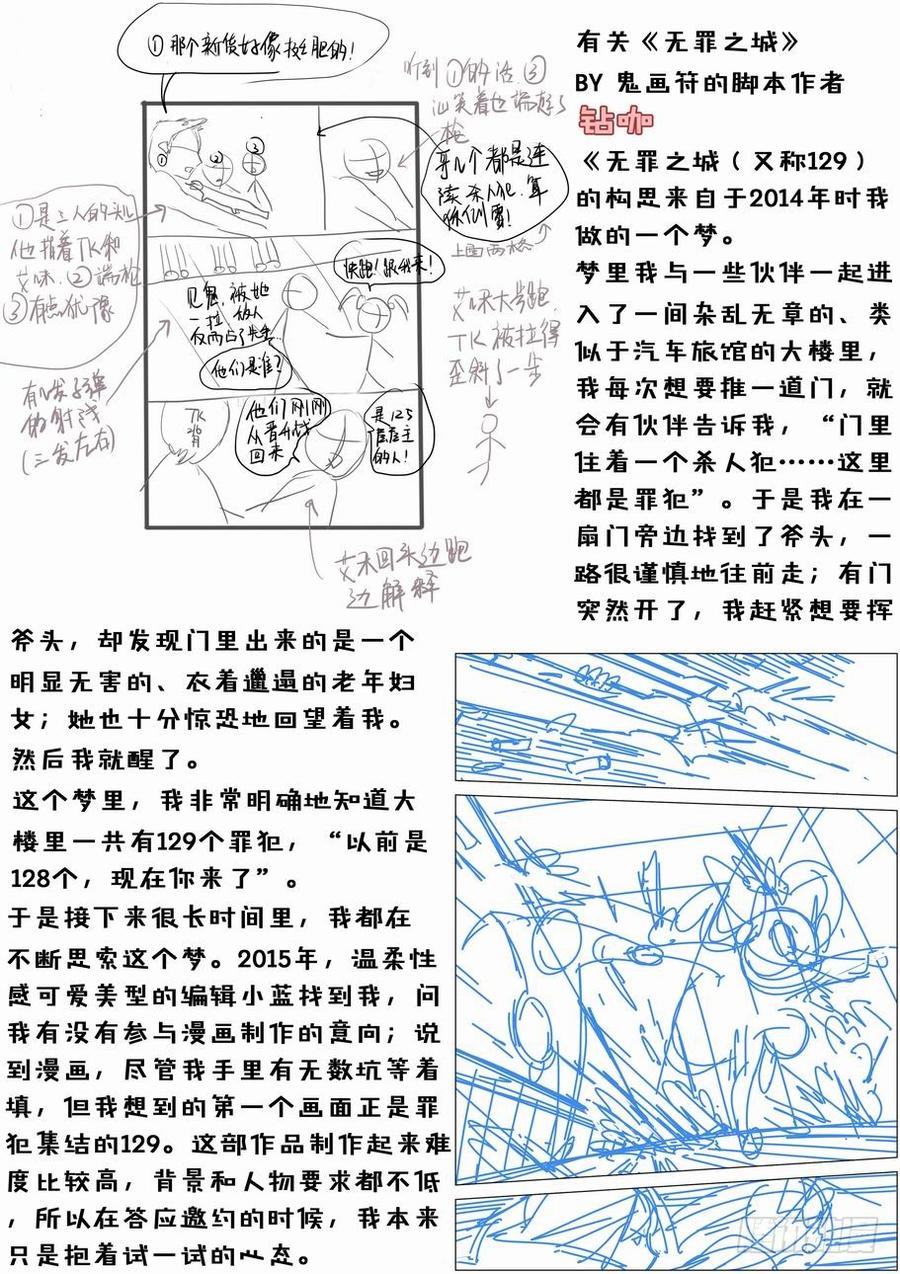 ①那个新傢好像挺肥的!
听到①的话③
汕笑着也端起了
枪
哥几个都是连
续杀人犯,算
上面两格
他指着TK和
艾味.②端枪
③有点犹像
见鬼,被她
一拉
他们是谁?
快跑!跟我来!
艾味大步跑
TK被拉得
歪斜了一步
的射线
(三发左右)
TK
他们刚刚
从晋升战
回来
是125
层层主
的人!
艾味回头边跑
边解释
有关《无罪之城》
BY 鬼画符的脚本作者
钻咖
《无罪之城(又称129)
的构思来自于2014年时我
做的一个梦。
梦里我与一些伙伴一起进
入了一间杂乱无章的、类
似于汽车旅馆的大楼里,
我每次想要推一道门,就
会有伙伴告诉我,“门里
住着一个杀人犯……这里
都是罪犯”。于是我在一
扇门旁边找到了斧头,一
路很谨慎地往前走;有门
突然开了,我赶紧想要挥
斧头,却发现门里出来的是一个
明显无害的、衣着邋遢的老年妇
女;她也十分惊恐地回望着我。
然后我就醒了。
这个梦里,我非常明确地知道大
楼里一共有129个罪犯,“以前是
128个,现在你来了”。
于是接下来很长时间里,我都在
不断思索这个梦。2015年,温柔性
感可爱美型的编辑小蓝找到我,问
我有没有参与漫画制作的意向;说
到漫画,尽管我手里有无数坑等着
填,但我想到的第一个画面正是罪
犯集结的129。这部作品制作起来难
度比较高,背景和人物要求都不低
,所以在答应邀约的时候,我本来
只是抱着试一试的心态。